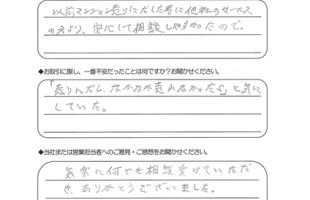 以前マンション売りにだした時に他社のセールス
の方より、安心して相談しやすかったので。
◆お取引に際し、一番不安だったことは何ですか？お聞かせください。
「売りんだし、なかなか売れなかったら」と気に
していた。
◆当社または営業担当者へのご意見・ご感想をお聞かせください。
気楽に何でも相談受けていただ
き、ありがとうございました。